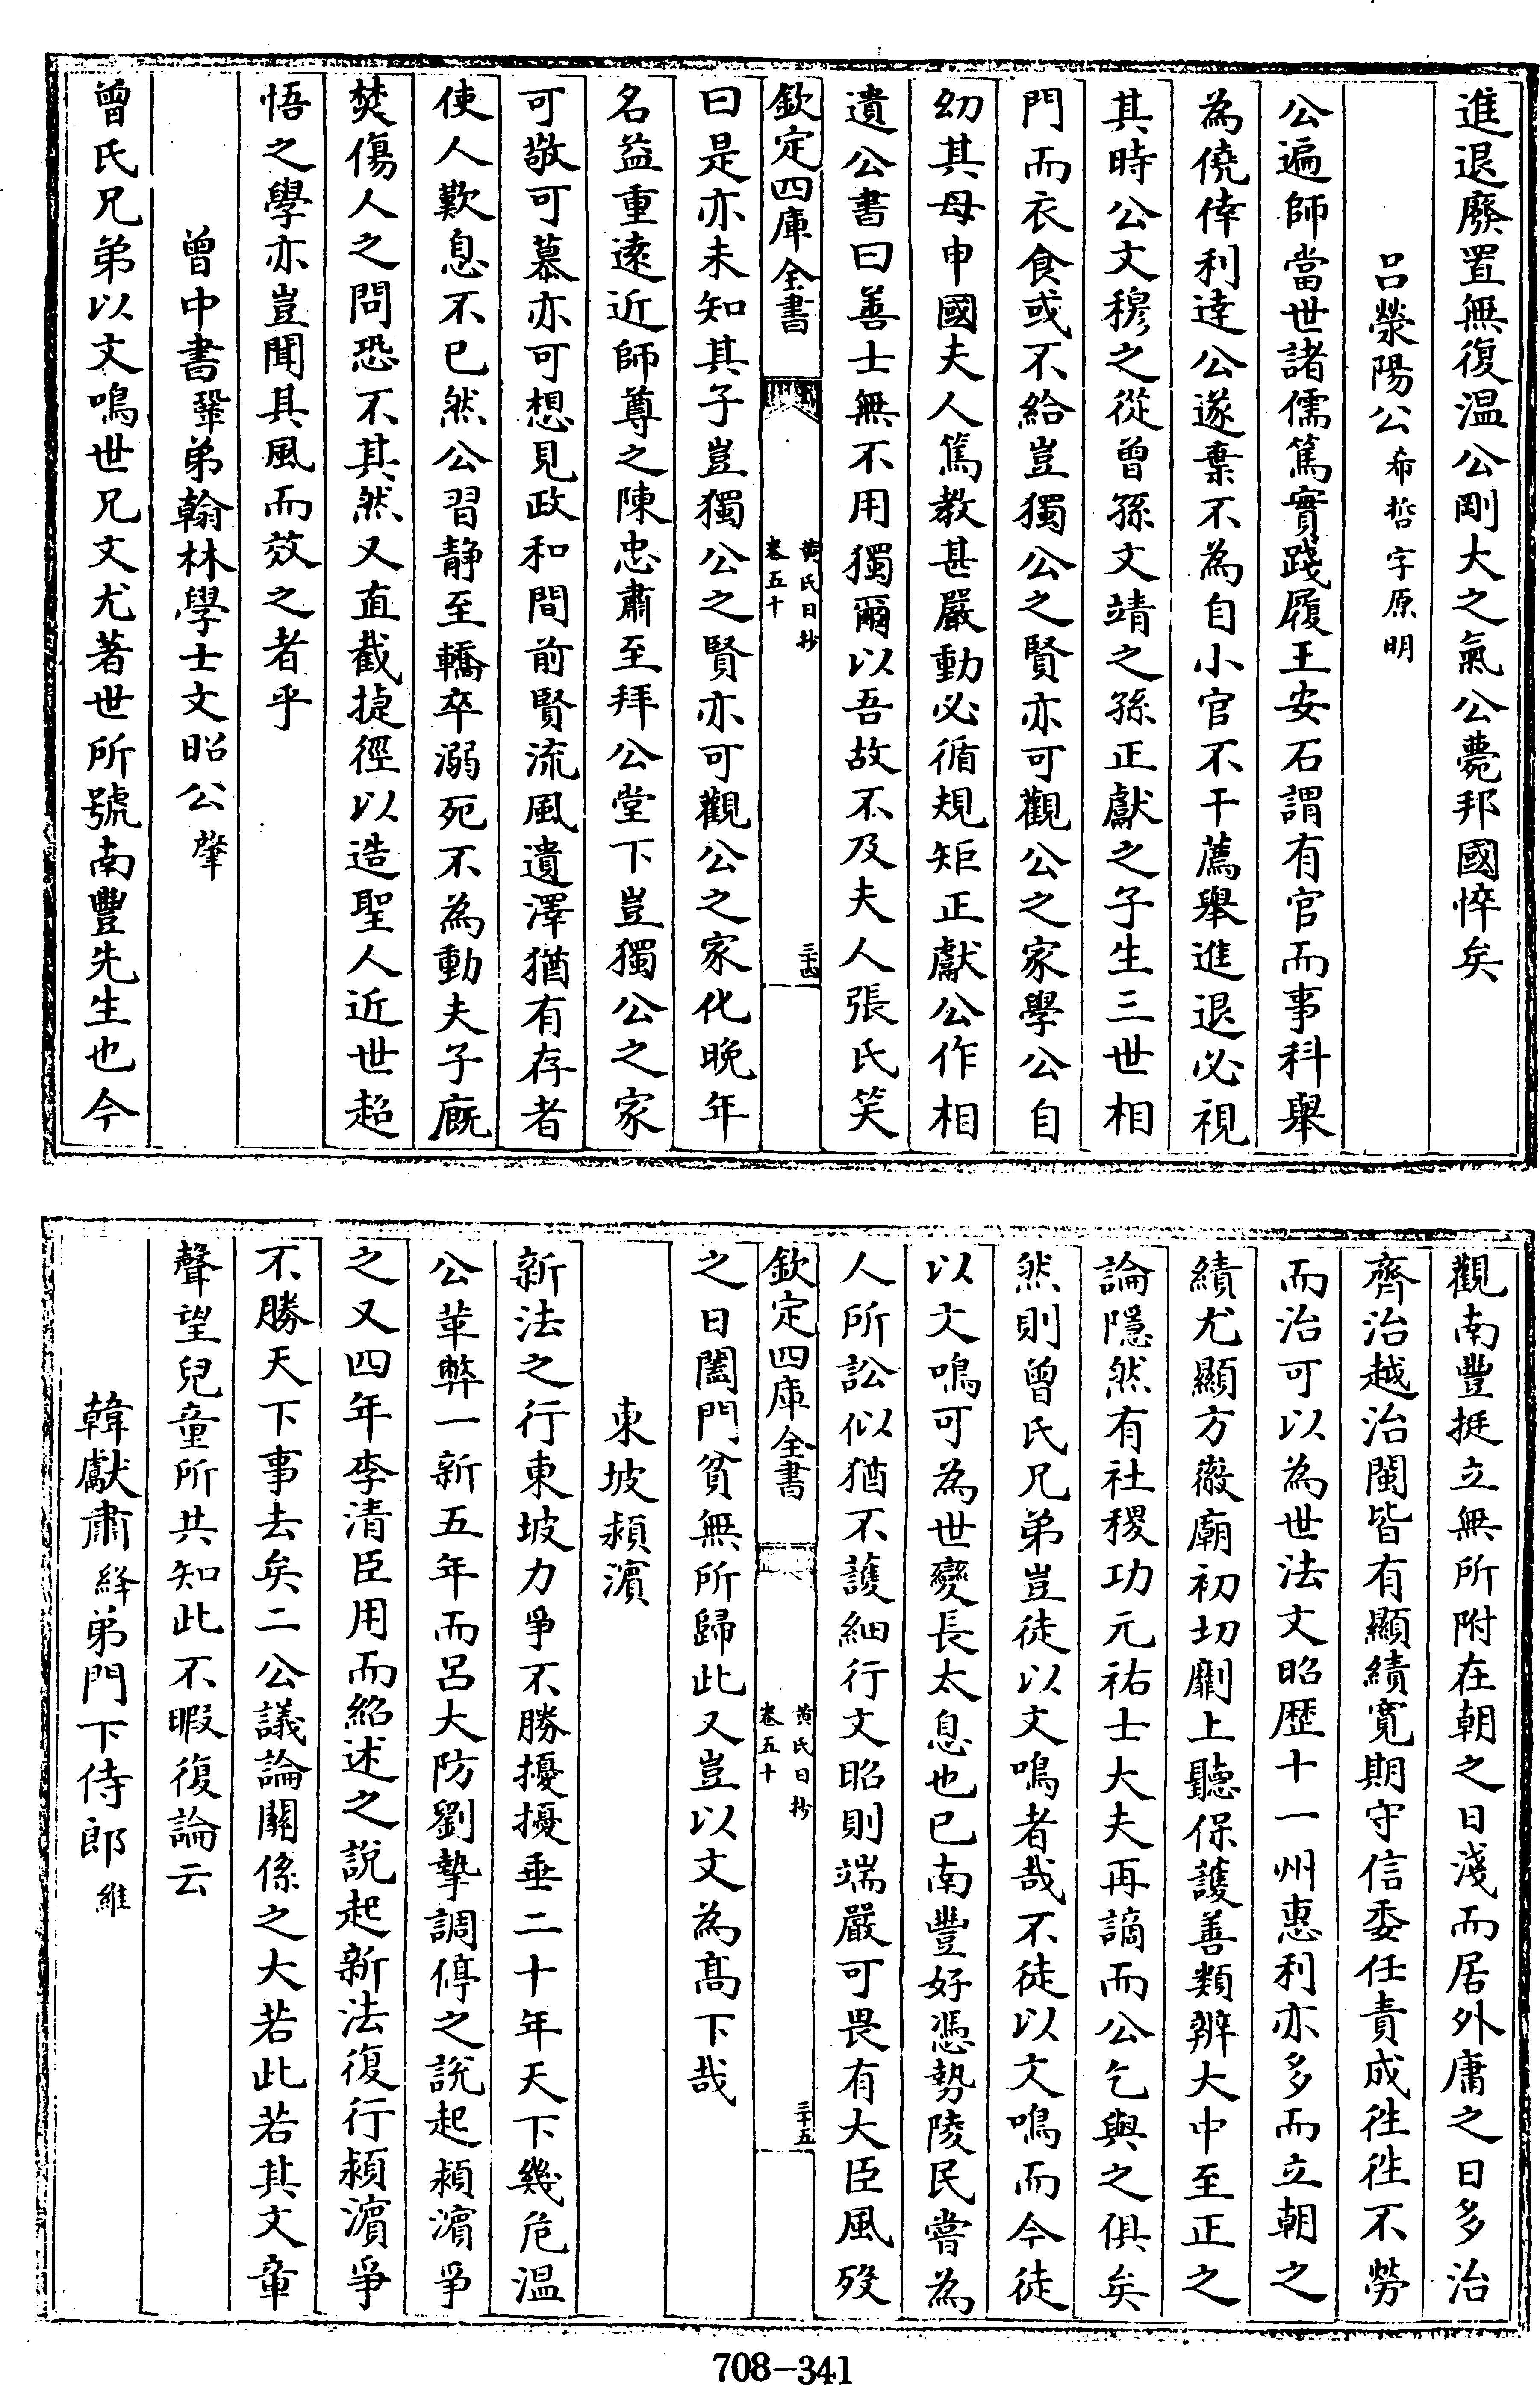 進退廢置無復温公剛大之氣公薨邦國悴矣
吕滎陽公希哲字原明
公遍師當世諸儒篤實踐履王安石謂有官而事科舉
為僥倖利達公遂棄不為自小官不干薦舉進退必視
其時公文穆之從曾孫文靖之孫正獻之子生三世相
門而衣食或不給豈獨公之賢亦可觀公之家學公自
幼其母申國夫人篤教甚嚴動必循規矩正獻公作相
遺公書曰善士無不用獨爾以吾故不及夫人張氏笑
欽定四庫全書 黄氏日抄 卷五十 三十四
曰是亦未知其子豈獨公之賢亦可觀公之家化晚年
名益重遠近師尊之陳忠肅至拜公堂下豈獨公之家
可敬可慕亦可想見政和間前賢流風遺澤猶有存者
使人歎息不已然公習静至轎卒溺死不為動夫子廐
焚傷人之問恐不其然又直截捷徑以造聖人近世超
悟之學亦豈聞其風而效之者乎
曾中書鞏弟翰林學士文昭公肇
曾氏兄弟以文鳴世兄文尤著世所號南豐先生也今
觀南豐挺立無所附在朝之日淺而居外庸之日多治
齊治越治閩皆有顯績寛期守信委任責成徃徃不勞
而治可以為世法文昭歴十一州惠利亦多而立朝之
績尤顯方徽廟初切劘上聽保護善類辨大中至正之
論隱然有社稷功元祐士大夫再謫而公乞與之俱矣
然則曾氏兄弟豈徒以文鳴者哉不徒以文鳴而今徒
以文鳴可為世變長太息也已南豐好憑勢陵民嘗為
人所訟似猶不護細行文昭則端嚴可畏有大臣風歿
欽定四庫全書 黄氏日抄 卷五十 三十五
之日闔門貧無所歸此又豈以文為髙下哉
東坡潁濵
新法之行東坡力爭不勝擾擾垂二十年天下幾危温
公革弊一新五年而吕大防劉摯調停之說起潁濵爭
之又四年李清臣用而紹述之說起新法復行潁濵爭
不勝天下事去矣二公議論關係之大若此若其文章
聲望兒童所共知此不暇復論云
韓獻肅絳弟門下侍郎維
708-341